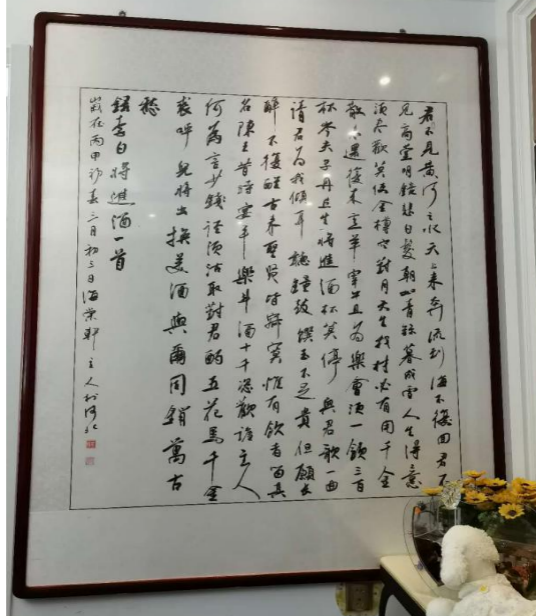 君不見黄河之水天上来奔流到海不復回君不
見高堂明鏡悲白髮朝如青絲暮成雪人生得意
須尽歡莫使金樽空對月天生我材必有用千金
散尽還復来烹羊宰牛且為樂會須一飲三百
杯岑夫子丹丘生將進酒杯莫停與君歌一曲
請君为我傾耳聽鐘鼓饌玉不足貴但願長
醉不復醒古来聖賢皆寂寞惟有飲者留其
名陳王昔時宴平樂斗酒十千恣歡謔主人
何為言少錢徑須沽取對君酌五花馬千金
裘呼兒將出換美酒與爾同銷萬古
愁
錄李白將進酒一首
歲在丙申初春三月初三日海棠軒主人於河北